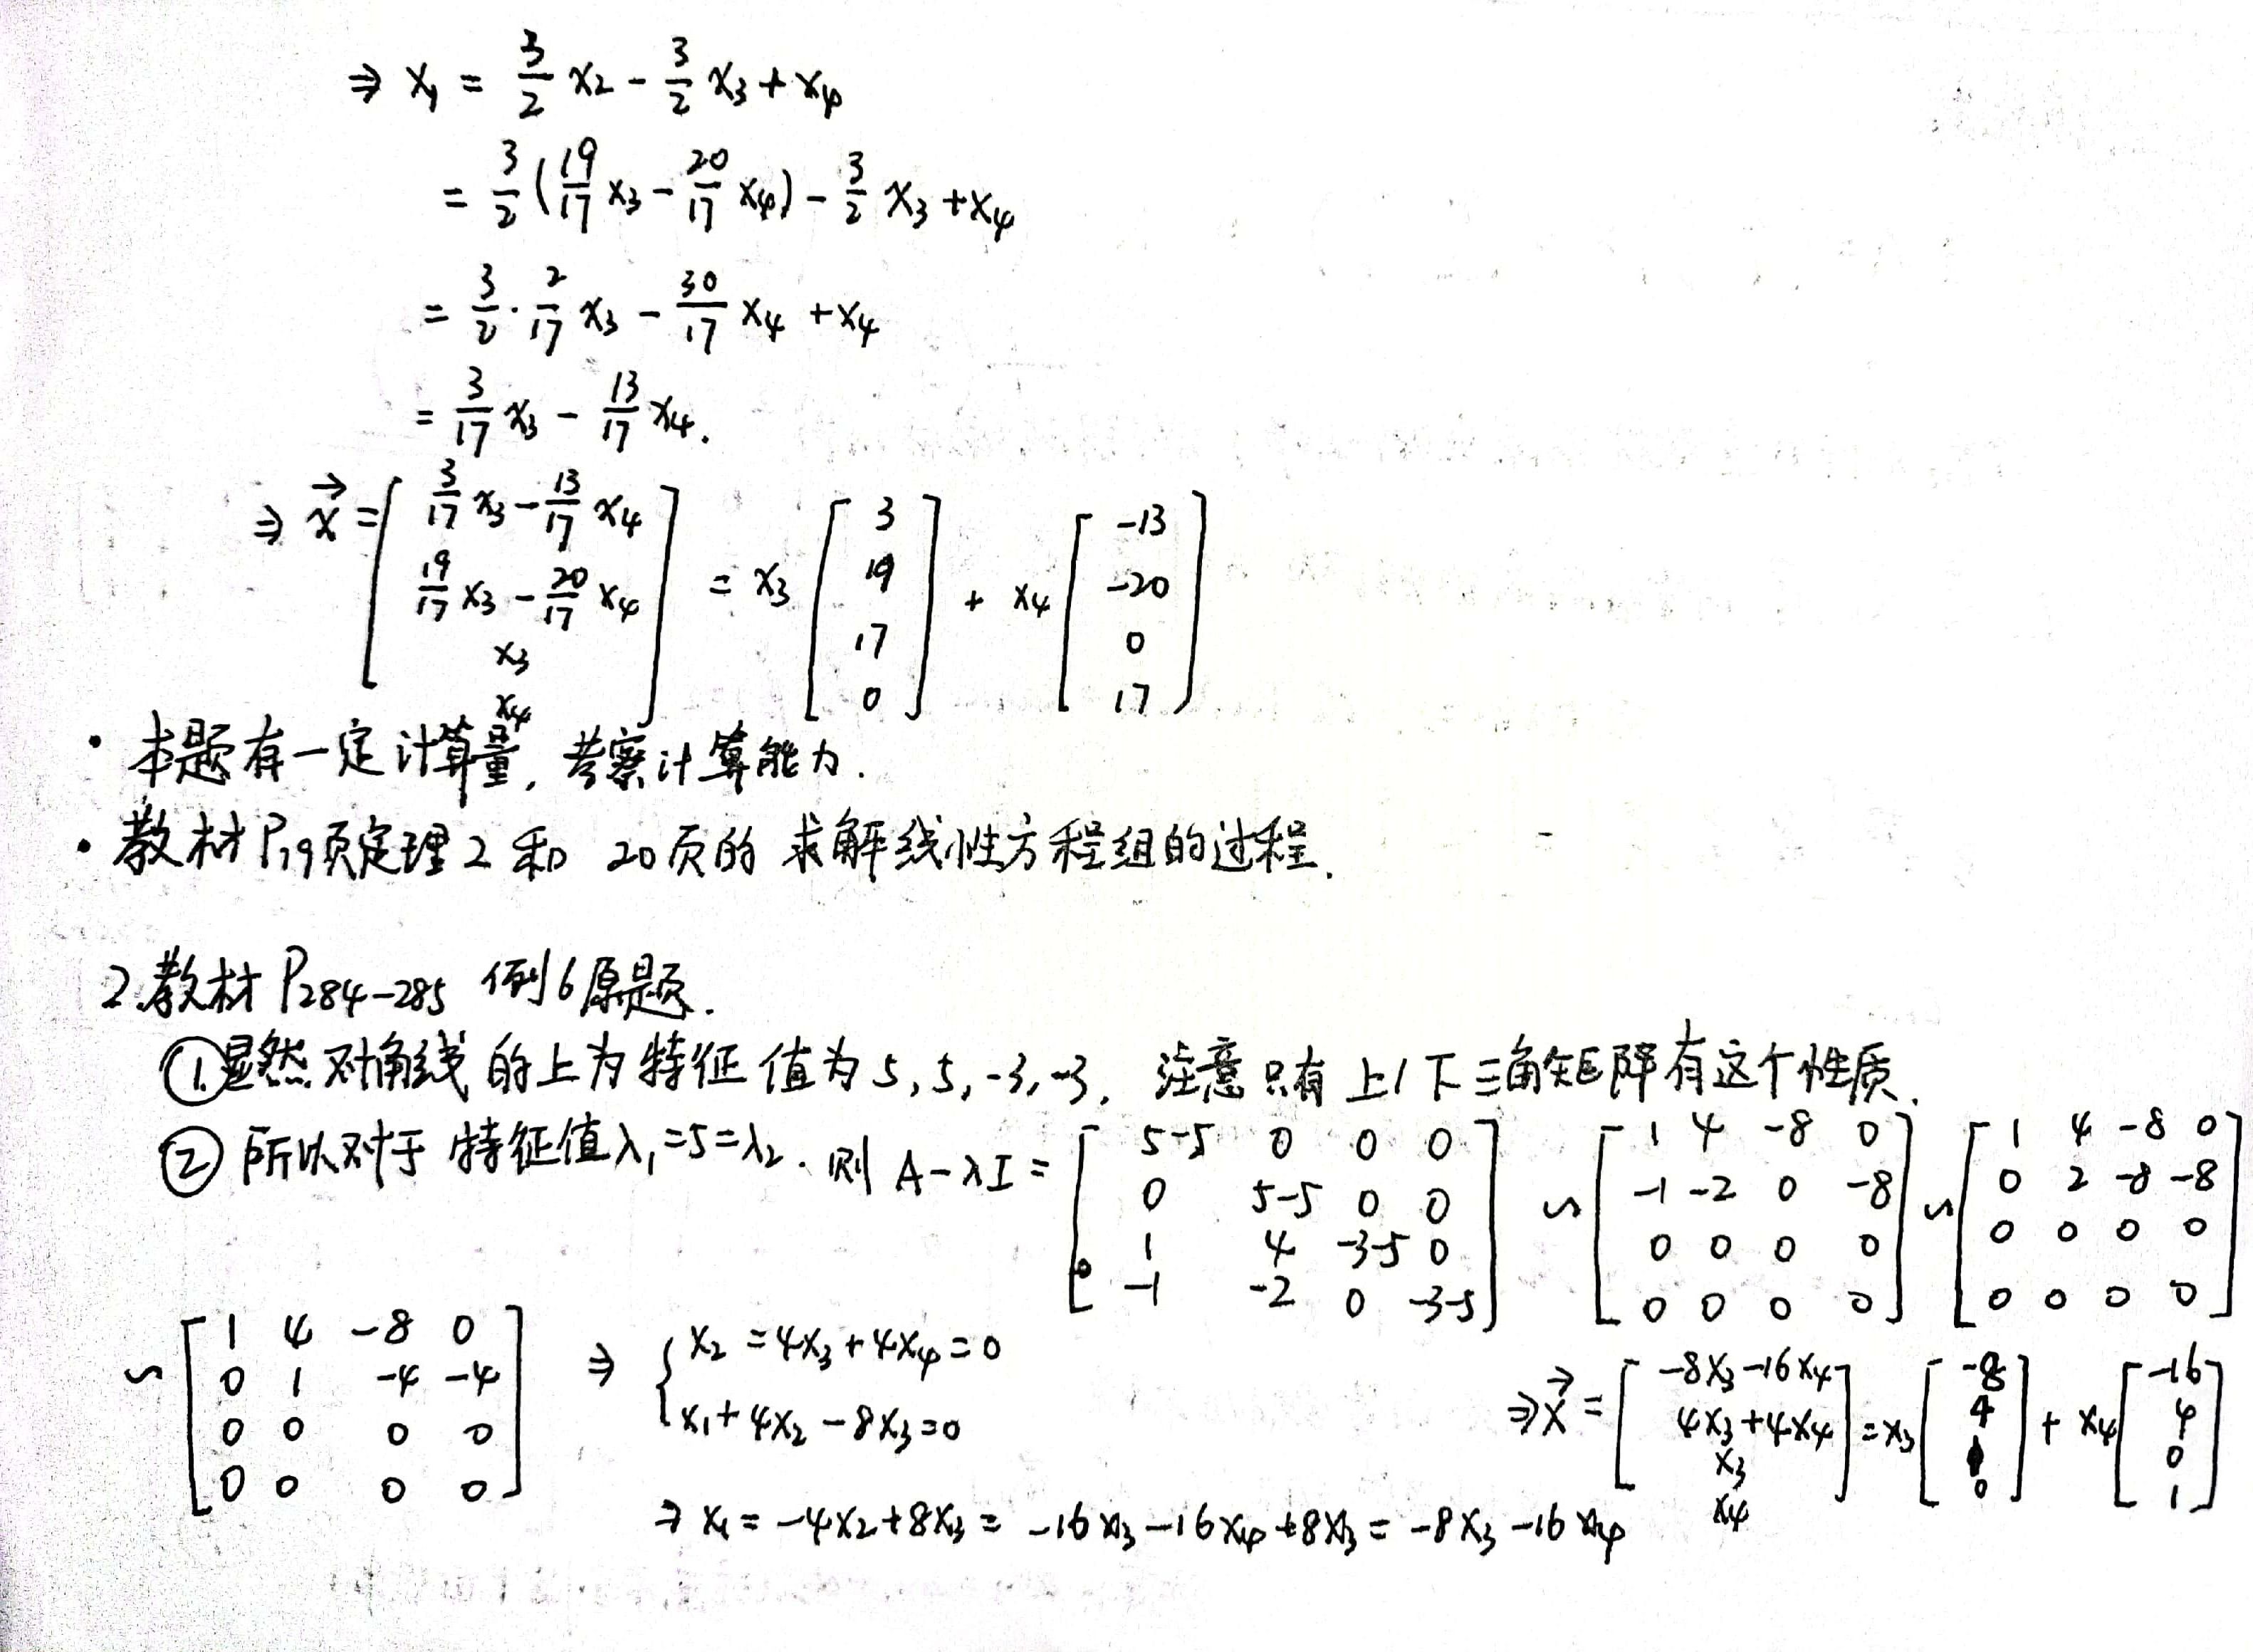 ⇒ x₁ = 3/2 x₂ - 3/2 x₃ + x₄
= 3/2 (19/17 x₃ - 20/17 x₄) - 3/2 x₃ + x₄
= 3/2 · 2/17 x₃ - 30/17 x₄ + x₄
= 3/17 x₃ - 13/17 x₄.
⇒ x⃗ = [3/17 x₃ - 13/17 x₄; 19/17 x₃ - 20/17 x₄; x₃; x₄] = x₃ [3; 19; 17; 0] + x₄ [-13; -20; 0; 17]
· 本题有一定计算量, 考察计算能力.
· 教材P₁₉页定理2和 20页的 求解线性方程组的过程.
2.教材 P₂₈₄₋₂₈₅ 例6原题.
①显然对角线的上为特征值为5,5,-3,-3, 注意只有上/下三角矩阵有这个性质.
② 所以对于 特征值λ₁=5=λ₂. 则 A-λI = [5-5 0 0 0; 0 5-5 0 0; 1 4 -3-5 0; -1 -2 0 -3-5] ∽ [1 4 -8 0; -1 -2 0 -8; 0 0 0 0; 0 0 0 0] ∽ [1 4 -8 0; 0 2 -8 -8; 0 0 0 0; 0 0 0 0]
∽ [1 4 -8 0; 0 1 -4 -4; 0 0 0 0; 0 0 0 0] ⇒ { x₂ = 4x₃ + 4x₄ = 0; x₁ + 4x₂ - 8x₃ = 0
⇒ x₁ = -4x₂ + 8x₃ = -16x₃ - 16x₄ + 8x₃ = -8x₃ - 16x₄
⇒ x⃗ = [-8x₃ - 16x₄; 4x₃ + 4x₄; x₃; x₄] = x₃ [-8; 4; 1; 0] + x₄ [-16; 4; 0; 1]